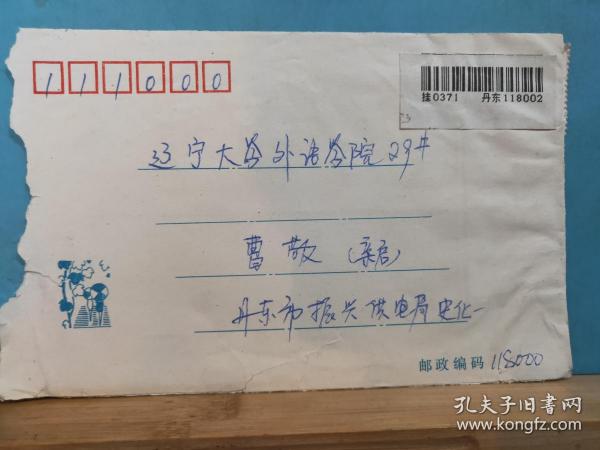 111000
挂0371 丹东118002
辽宁大学外语学院29#
曹敬(亲启)
丹东市振兴供电局史化一
邮政编码 118000
孔夫子旧书网
www.kongfz.com